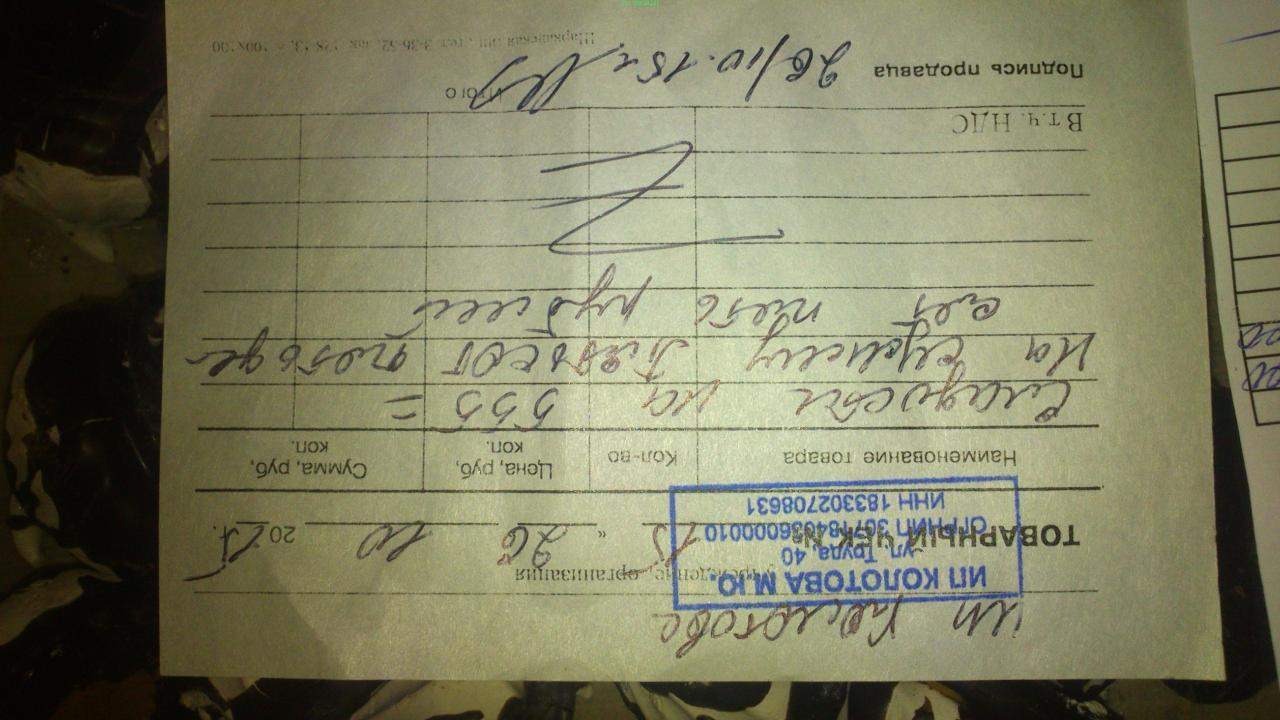 ИП Колотова
Учреждение, организация
ИП КОЛОТОВА М.Ю.
ул. Труда, 40
ОГРНИП 307184036000010
ИНН 183302708631
ТОВАРНЫЙ ЧЕК № 15 " 26 10 2015 г.
Наименование товара Кол-во Цена, руб, коп. Сумма, руб, коп.
Сладости на 555=
На сумму Пятьсот пятьде
сят пять рублей
В т.ч. НДС
ИТОГО
Подпись продавца 26/10.15г
Шарканская тип., тел. 3-36-52, зак. 128-13, т. 100х100